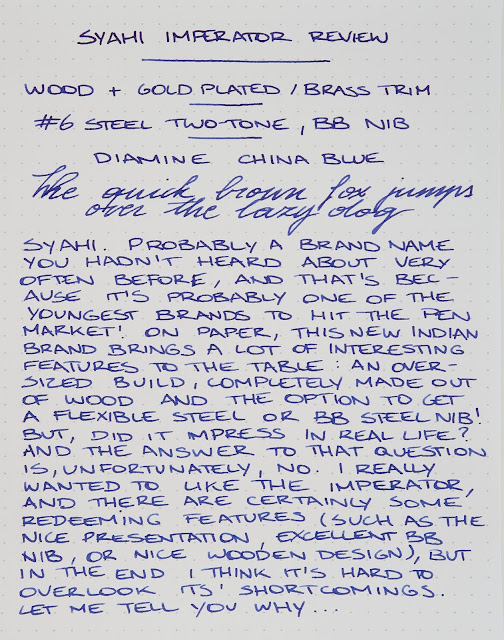 SYAHI IMPERATOR REVIEW
WOOD + GOLD PLATED / BRASS TRIM
#6 STEEL TWO-TONE, BB NIB
DIAMINE CHINA BLUE
The quick brown fox jumps
over the lazy dog
SYAHI. PROBABLY A BRAND NAME
YOU HADN'T HEARD ABOUT VERY
OFTEN BEFORE, AND THAT'S BEC-
AUSE IT'S PROBABLY ONE OF THE
YOUNGEST BRANDS TO HIT THE PEN
MARKET! ON PAPER, THIS NEW INDIAN
BRAND BRINGS A LOT OF INTERESTING
FEATURES TO THE TABLE: AN OVER-
SIZED BUILD, COMPLETELY MADE OUT
OF WOOD AND THE OPTION TO GET
A FLEXIBLE STEEL OR BB STEEL NIB!
BUT, DID IT IMPRESS IN REAL LIFE?
AND THE ANSWER TO THAT QUESTION
IS, UNFORTUNATELY, NO. I REALLY
WANTED TO LIKE THE IMPERATOR,
AND THERE ARE CERTAINLY SOME
REDEEMING FEATURES (SUCH AS THE
NICE PRESENTATION, EXCELLENT BB
NIB, OR NICE WOODEN DESIGN), BUT
IN THE END I THINK IT'S HARD TO
OVERLOOK ITS' SHORTCOMINGS.
LET ME TELL YOU WHY...